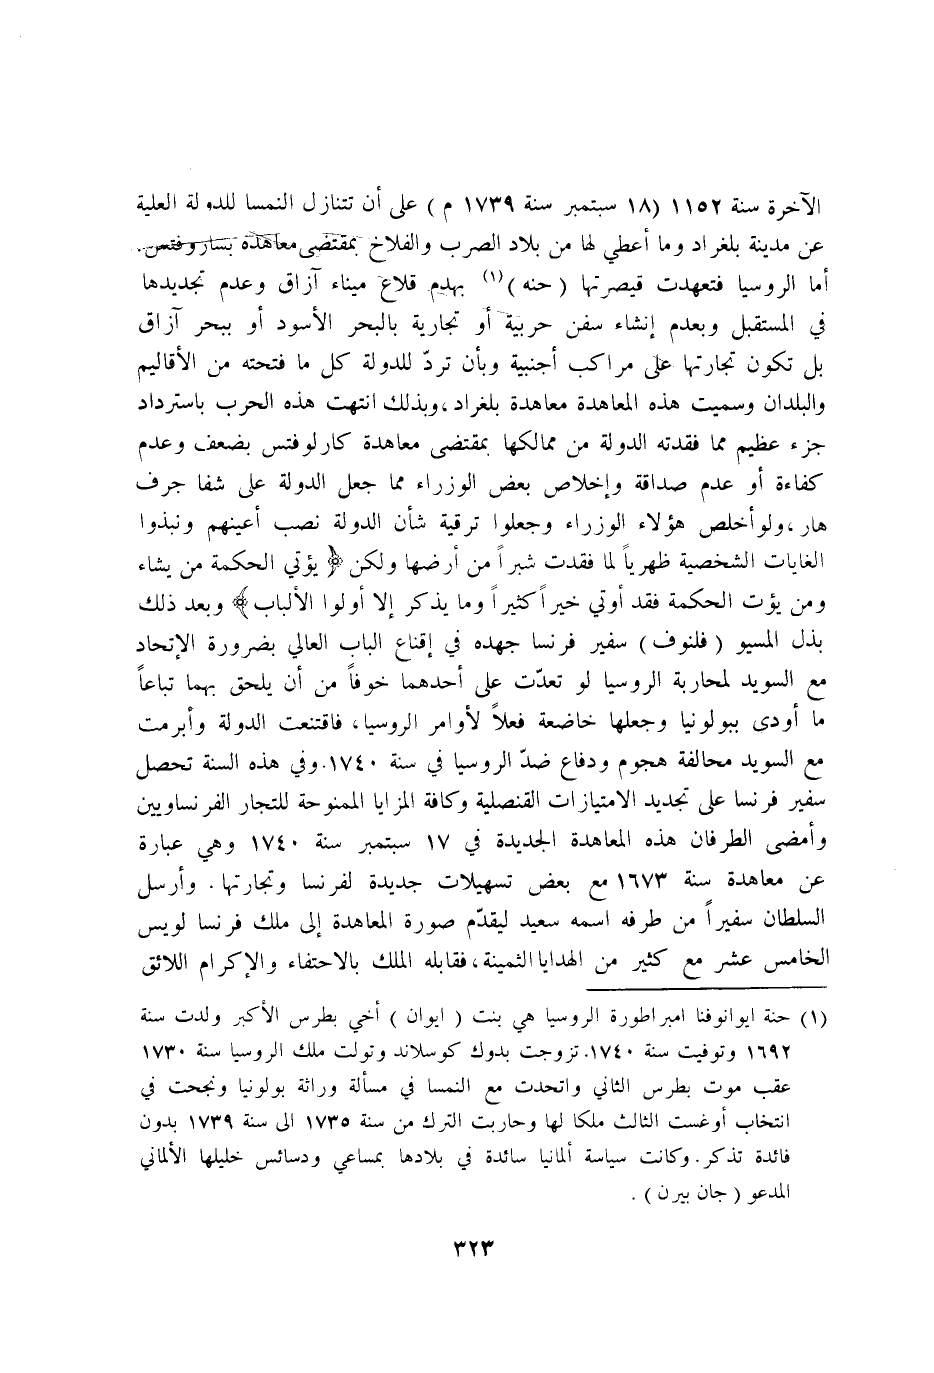 الآخرة سنة ١١٥٢ (١٨ سبتمبر سنة ١٧٣٩ م) على أن تتنازل النمسا للدولة العلية
عن مدينة بلغراد وما أعطي لها من بلاد الصرب والفلاخ بمقتضى معاهدة بساروفتس.
أما الروسيا فتعهدت قيصرتها (حنه)(١) بهدم قلاع ميناء آزاق وعدم تجديدها
في المستقبل وبعدم إنشاء سفن حربية أو تجارية بالبحر الأسود أو ببحر آزاق
بل تكون تجارتها على مراكب أجنبية وبأن تردّ للدولة كل ما فتحته من الأقاليم
والبلدان وسميت هذه المعاهدة معاهدة بلغراد، وبذلك انتهت هذه الحرب باسترداد
جزء عظيم مما فقدته الدولة من ممالكها بمقتضى معاهدة كارلوفتس بضعف وعدم
كفاءة أو عدم صداقة وإخلاص بعض الوزراء مما جعل الدولة على شفا جرف
هار، ولو أخلص هؤلاء الوزراء وجعلوا ترقية شأن الدولة نصب أعينهم ونبذوا
الغايات الشخصية ظهرياً لما فقدت شبراً من أرضها ولكن ﴿يؤتي الحكمة من يشاء
ومن يؤت الحكمة فقد أوتي خيراً كثيراً وما يذكر إلا أولوا الألباب﴾ وبعد ذلك
بذل المسيو (فلنوف) سفير فرنسا جهده في إقناع الباب العالي بضرورة الإتحاد
مع السويد لمحاربة الروسيا لو تعدّت على أحدهما خوفاً من أن يلحق بهما تباعاً
ما أودى ببولونيا وجعلها خاضعة فعلاً لأوامر الروسيا، فاقتنعت الدولة وأبرمت
مع السويد محالفة هجوم ودفاع ضدّ الروسيا في سنة ١٧٤٠. وفي هذه السنة تحصل
سفير فرنسا على تجديد الامتيازات القنصلية وكافة المزايا الممنوحة للتجار الفرنساويين
وأمضى الطرفان هذه المعاهدة الجديدة في ١٧ سبتمبر سنة ١٧٤٠ وهي عبارة
عن معاهدة سنة ١٦٧٣ مع بعض تسهيلات جديدة لفرنسا وتجارتها. وأرسل
السلطان سفيراً من طرفه اسمه سعيد ليقدّم صورة المعاهدة إلى ملك فرنسا لويس
الخامس عشر مع كثير من الهدايا الثمينة، فقابله الملك بالاحتفاء والإكرام اللائق
(١) حنة ايوانوفنا امبراطورة الروسيا هي بنت (ايوان) أخي بطرس الأكبر ولدت سنة
١٦٩٢ وتوفيت سنة ١٧٤٠. تزوجت بدوك كوسلاند وتولت ملك الروسيا سنة ١٧٣٠
عقب موت بطرس الثاني واتحدت مع النمسا في مسألة وراثة بولونيا ونجحت في
انتخاب أوغست الثالث ملكا لها وحاربت الترك من سنة ١٧٣٥ الى سنة ١٧٣٩ بدون
فائدة تذكر. وكانت سياسة ألمانيا سائدة في بلادها بمساعي ودسائس خليلها الألماني
المدعو (جان بيرن).
٣٢٣